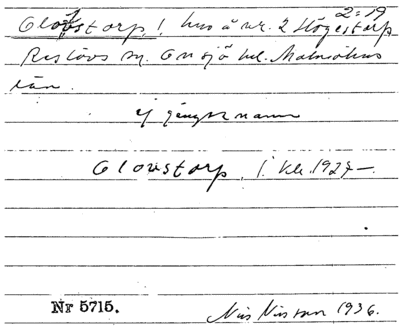 2:19
Olofstorp, l. hus å nr. 2 Högestorp
Reslövs sn. Onsjö hd. Malmöhus
län.
Ej gängse namn
Olovstorp, l. kl. 1927–.
Nr 5715.
Nils Nilsson 1936.